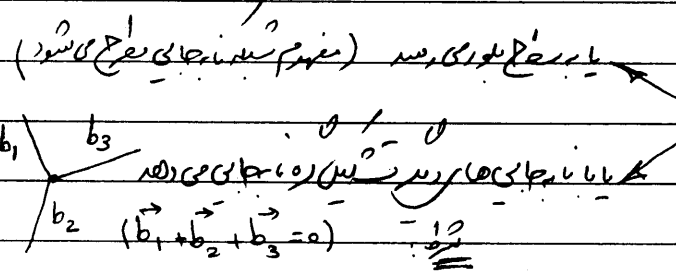 یا به سطح بلور می رسد (مفهوم شبکه نابجایی مطرح می شود)
b₁ b₃ یا با نابجایی های دیگر تشکیل گره نابجایی می دهد
b₂ شرط: (b⃗₁+b⃗₂+b⃗₃=0)